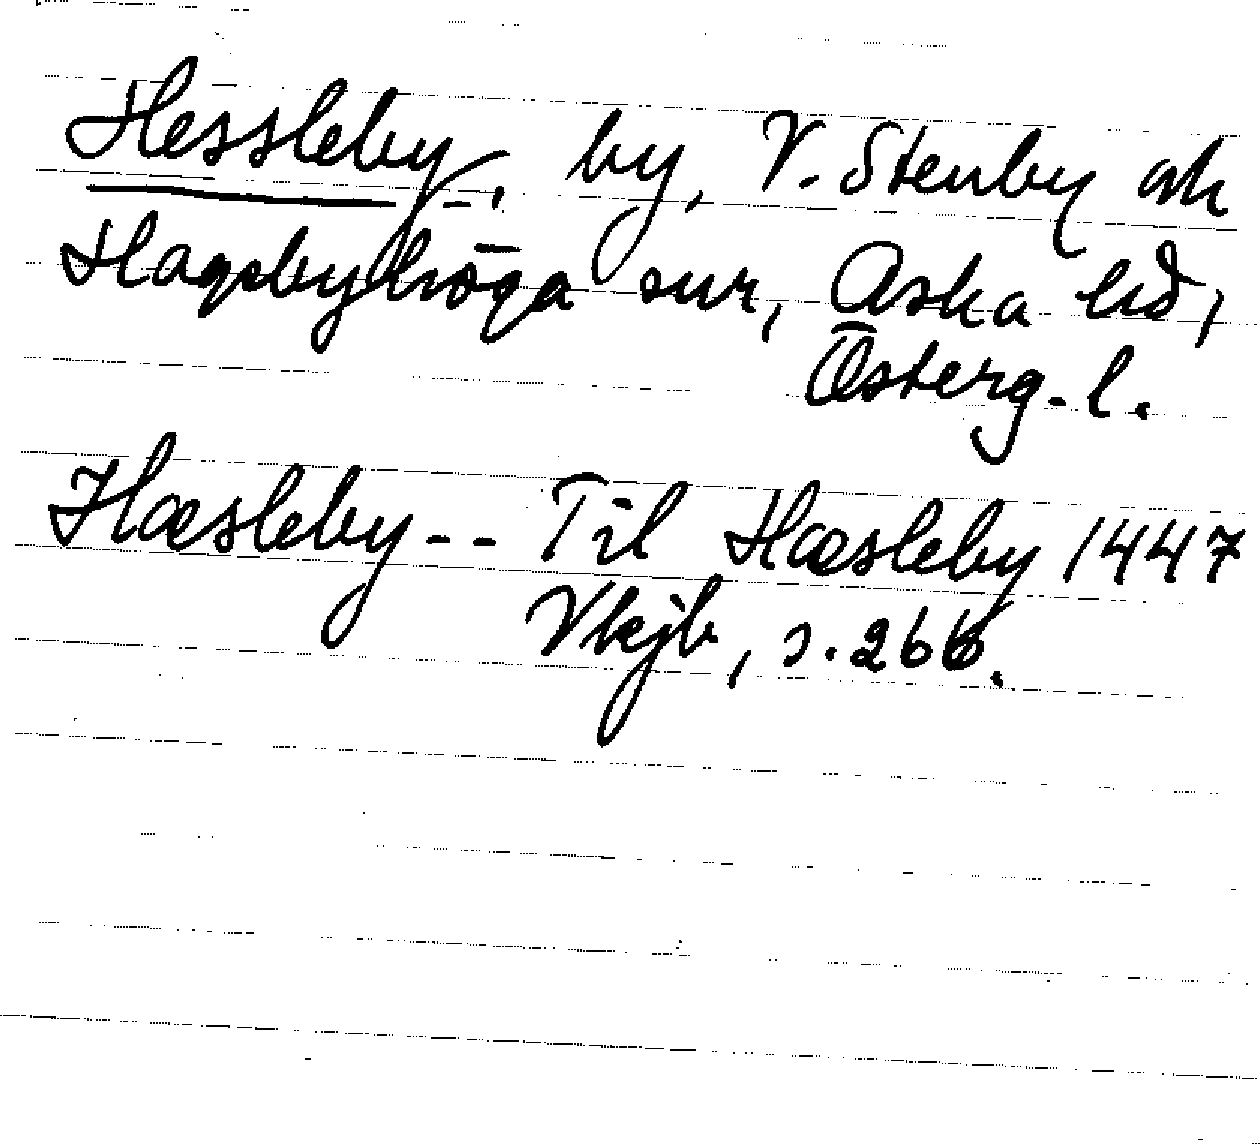 Hessleby, by, V. Stenby och
Hagebyhöga snr, Aska hd,
Österg. l.
Hæsleby -- Til Hæsleby 1447
Vkjb, s. 266.